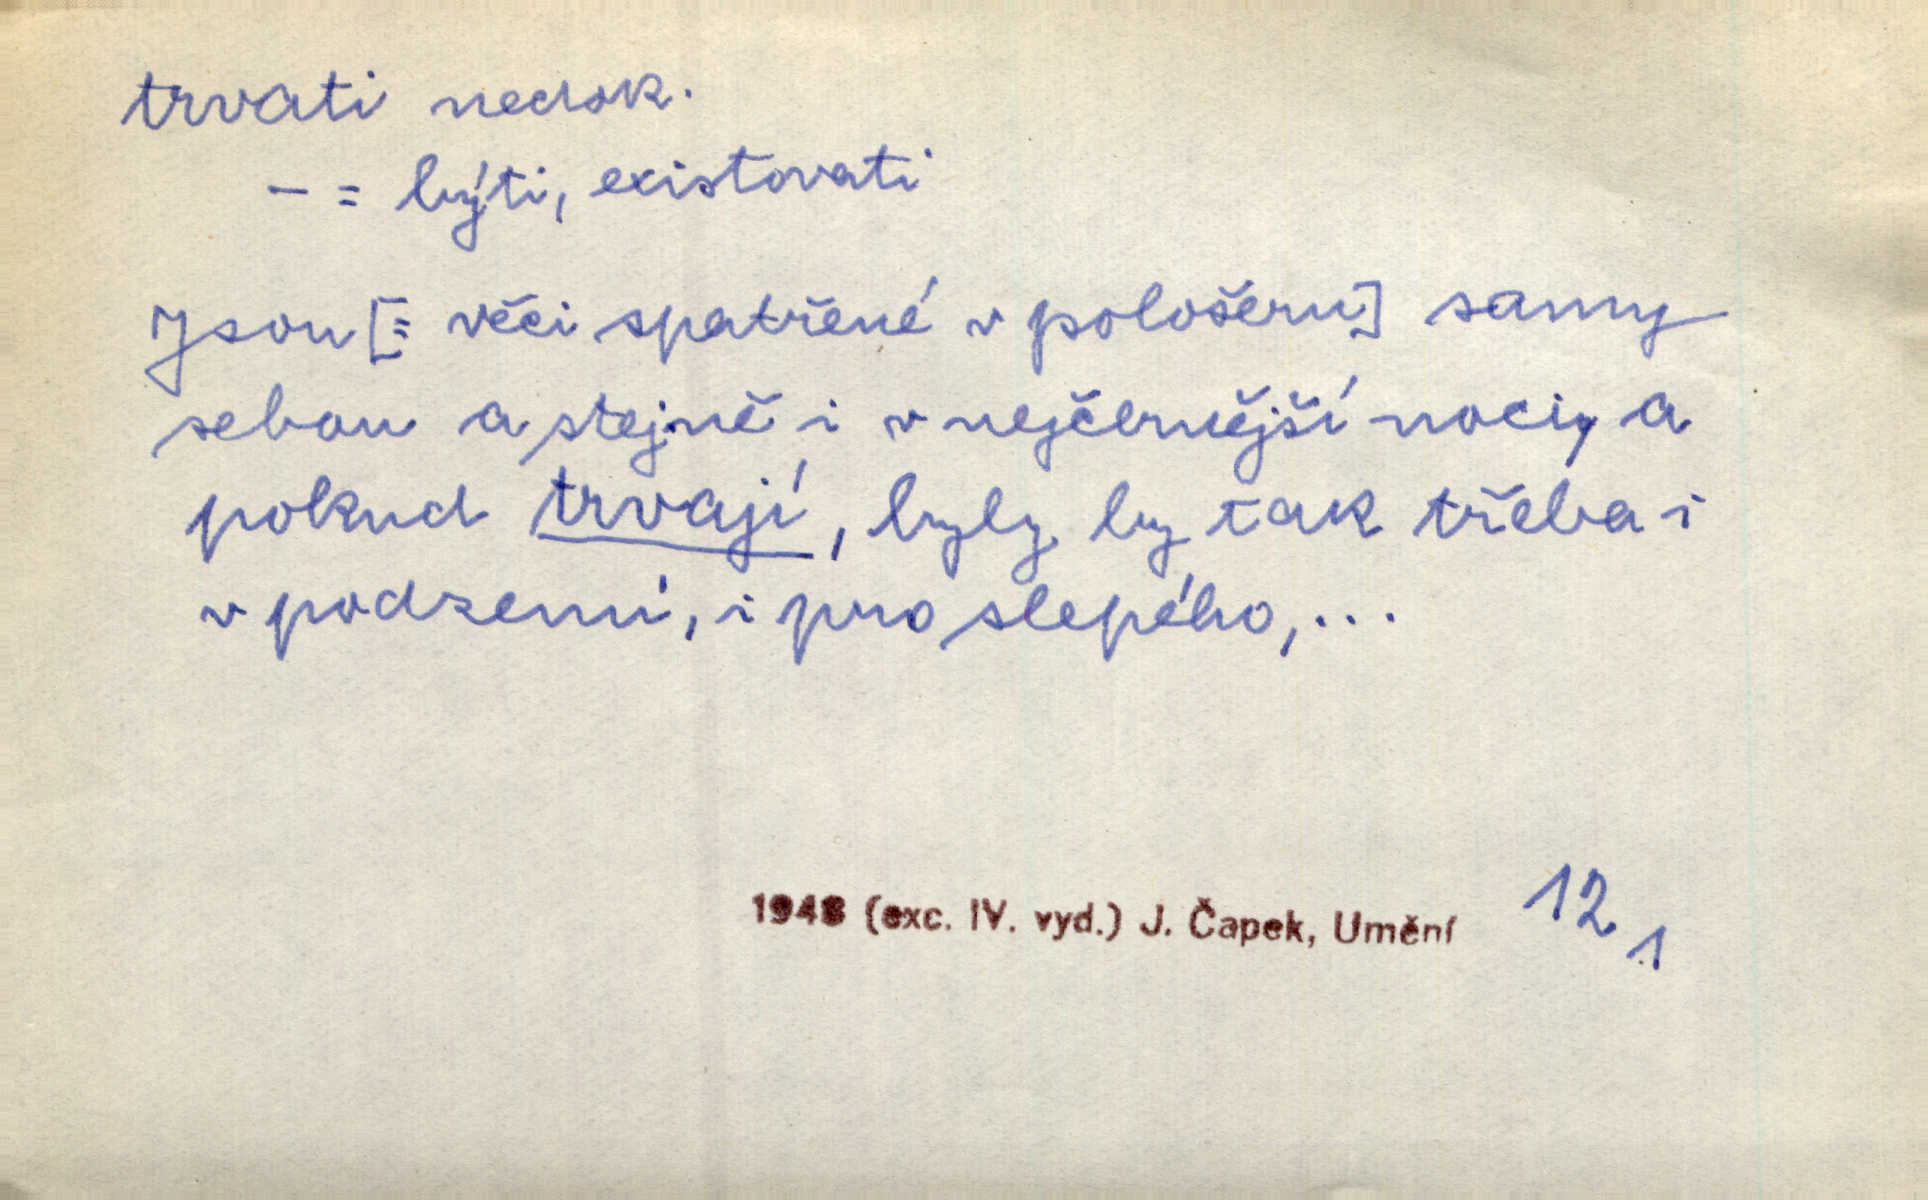 trvati nedok.
— = býti, existovati
Jsou [= věci spatřené v pološeru] samy
sebou a stejně i v nejčernější noci, a
pokud trvají, byly by tak třeba i
v podzemí, i pro slepého, ...
1948 (exc. IV. vyd.) J. Čapek, Umění 12
1